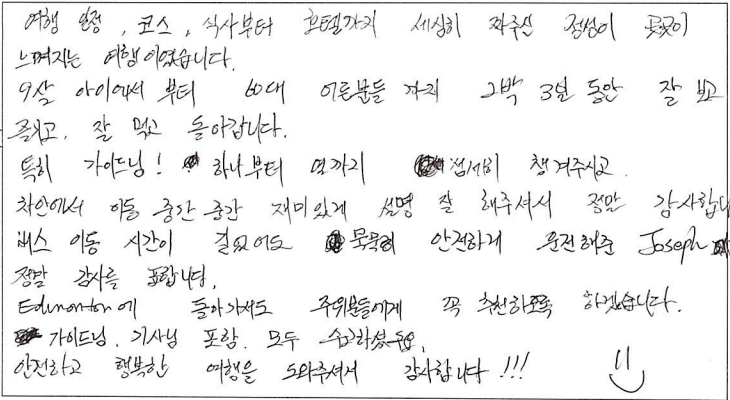 여행 일정, 코스, 식사부터 호텔까지 세심히 짜주신 정성이 곳곳이
느껴지는 여행이었습니다.
9살 아이에서부터 60대 어른분들 까지 2박 3일 동안 잘 보고
즐기고, 잘 먹고 돌아갑니다.
특히 가이드님! 하나부터 열까지 섬세히 챙겨주시고
차안에서 이동 중간 중간 재미있게 설명 잘 해주셔서 정말 감사합니다
버스 이동 시간이 길었어도 묵묵히 안전하게 운전해준 Joseph
정말 감사를 표합니다.
Edmonton에 돌아가서도 주위분들에게 꼭 추천하도록 하겠습니다.
가이드님, 기사님 포함, 모두 수고하셨구요,
안전하고 행복한 여행을 도와주셔서 감사합니다!!!